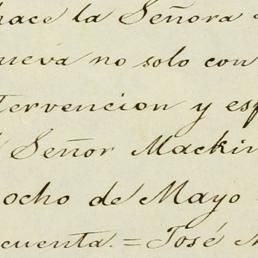 hace la Señora
nueva no solo con
tervencion y esp
Señor Mackin
ocho de Mayo
cuenta.=José M